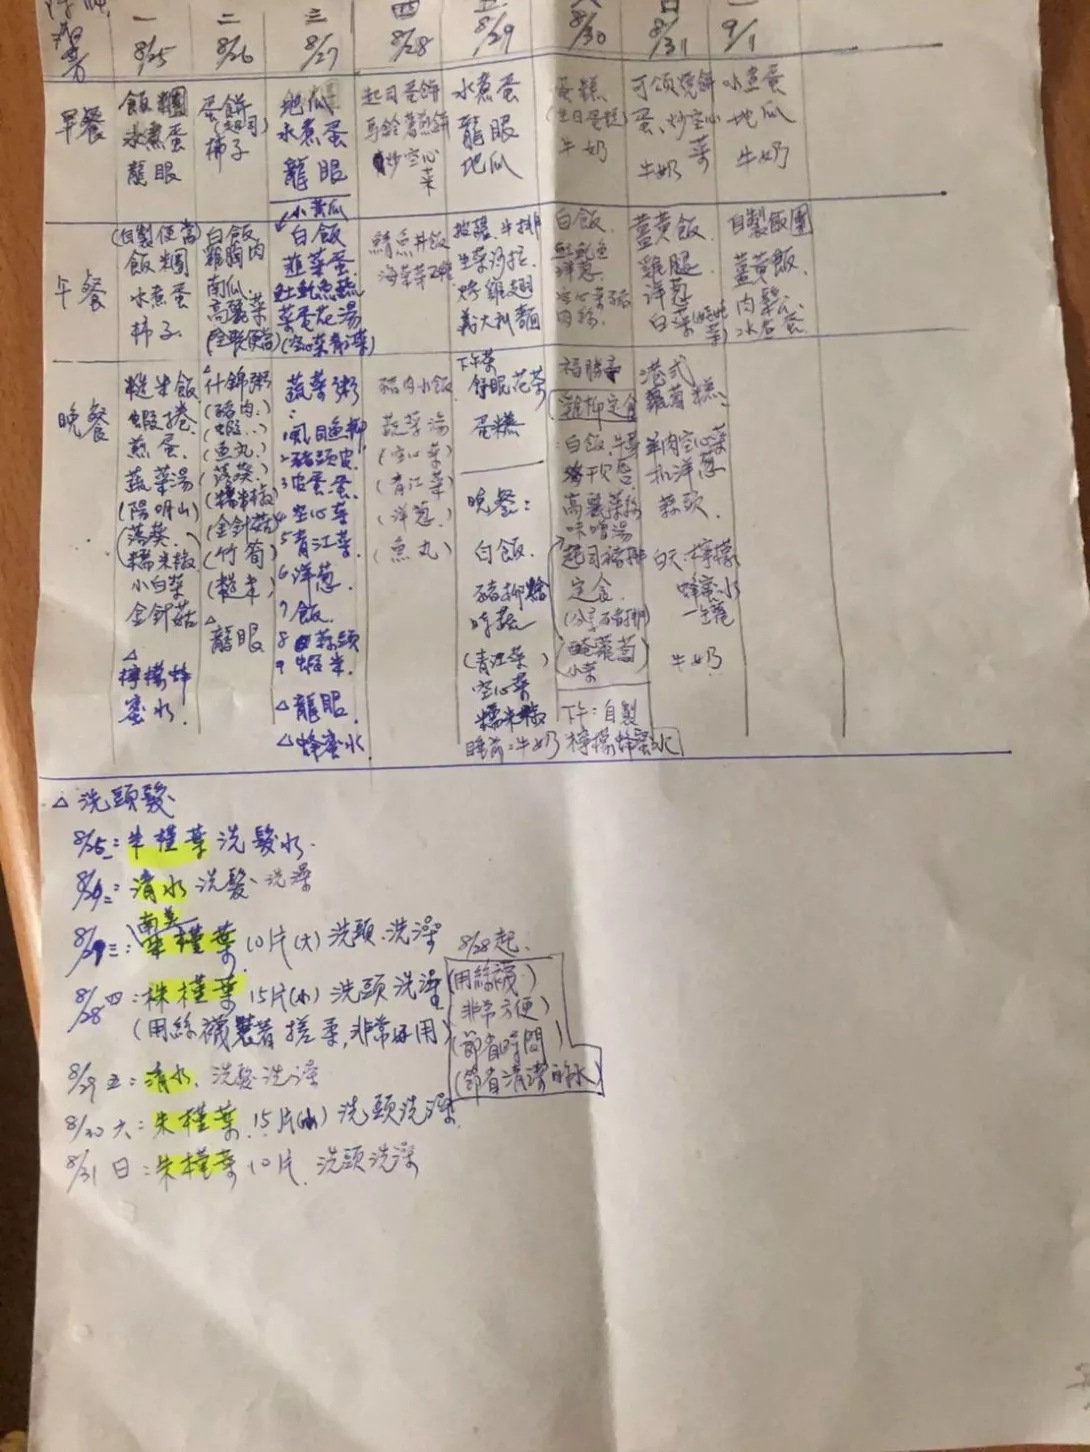 一 二 三 四 五 六 日 一
8/25 8/26 8/27 8/28 8/29 8/30 8/31 9/1
早餐
飯糰
水煮蛋
龍眼
蛋餅
(起司)
柿子
地瓜
水煮蛋
龍眼
起司蛋餅
馬鈴薯煎餅
炒空心
菜
水煮蛋
龍眼
地瓜
蛋糕
(生日蛋糕)
牛奶
可頌燒餅
蛋、炒空心
菜
牛奶
水煮蛋
地瓜
牛奶
午餐
(自製便當)
飯糰
水煮蛋
柿子
白飯
雞胸肉
南瓜
高麗菜
(全聯便當)
小黃瓜
白飯
韭菜蛋
土魠魚
菜蛋花湯
(空心菜青江菜)
鯖魚丼飯
海菜
披薩、牛排
生菜沙拉
烤雞翅
義大利麵
白飯
土魠魚
洋蔥
薑黃飯
雞腿
洋蔥
白菜
自製飯團
薑黃飯
肉鬆
水煮蛋
晚餐
糙米飯
蝦捲
煎蛋
蔬菜湯
(陽明山)
(落葵)
糯米椒
小白菜
金針菇
△
檸檬蜂
蜜水
△
什錦粥
(豬肉)
(蝦)
(魚丸)
(落葵)
(糯米椒)
(金針菇)
(竹筍)
(糙米)
△
龍眼
蔬菜粥
:
1虱目魚柳
2豬頭皮
3皮蛋蛋
4空心菜
5青江菜
6洋蔥
7飯
8蒜頭
9蝦米
△龍眼
△蜂蜜水
豬肉水餃
蔬菜湯
(空心菜)
(青江菜)
(洋蔥)
(魚丸)
下午茶
舒眠花茶
蛋糕
晚餐:
白飯
豬柳
時蔬
(青江菜)
空心菜
糯米椒
睡前:牛奶
福勝亭
雞柳定食
:白飯
高麗菜絲
味噌湯
起司豬排
定食
小菜
下午:自製
檸檬蜂蜜水
港式
蘿蔔糕
羊肉空心菜
洋蔥
蒜頭
白天:檸檬
蜂蜜水
牛奶
△洗頭髮
8/25一:朱槿葉洗髮水
8/26二:清水洗髮、洗澡
南美
8/27三:朱槿葉10片(大)洗頭、洗澡
8/28四:株槿葉15片(小)洗頭洗澡
(用絲襪裝著搓柔,非常好用)
8/28起
(用絲襪)
(非常方便)
(節省時間)
(節省清潔的水)
8/29五:清水、洗髮洗澡
8/30六:朱槿葉15片(小)洗頭洗澡
8/31日:朱槿葉10片、洗頭洗澡